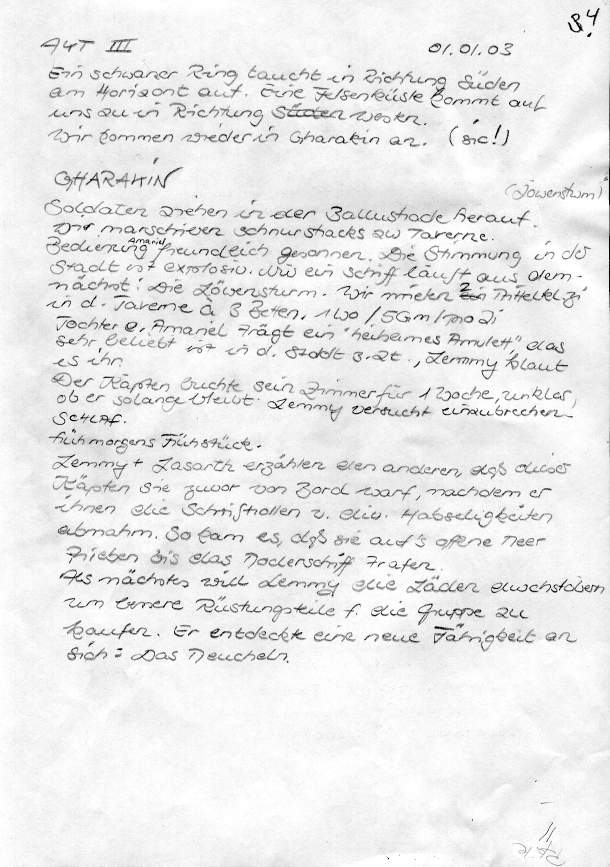 S. 4
AKT III 01.01.03
Ein schwarzer Ring taucht in Richtung Süden
am Horizont auf. Eine Felsenküste kommt auf
uns zu in Richtung Süden westen.
Wir kommen wieder in Gharakin an. (sic!)
GHARAKIN
(Löwensturm)
Soldaten ziehen in der Ballustrade herauf.
Wir marschieren schnurstracks zur Taverne.
Bedienung Amariel freundlich gesonnen. Die Stimmung in der
Stadt ist explosiv. Wie ein Schiff läuft aus dem-
nächst: Die Löwensturm. Wir mieten 2 Mittelkl. Zi
in d. Taverne à 3 Betten. 1 Wo / 5 Gm / pro Zi
Tochter Amariel trägt ein "geheimes Amulett" das
sehr beliebt ist in d. Stadt z. Zt., Lemmy klaut
es ihr.
Der Käpten buchte sein Zimmer für 1 Woche, unklar,
ob er solange bleibt. Lemmy versucht einzubrechen
SCHLAF.
frühmorgens Frühstück.
Lemmy + Lasarth erzählen den anderen, daß dieser
Käpten sie zuvor von Bord warf, nachdem er
ihnen die Schriftrollen u. div. Habseligkeiten
abnahm. So kam es, daß sie auf's offene Meer
trieben bis das Moderschiff trafen.
Als nächstes will Lemmy die Läden durchstöbern
um bessere Rüstungsteile f. die Gruppe zu
kaufen. Er entdeckte eine neue Fähigkeit an
sich: Das Meucheln.